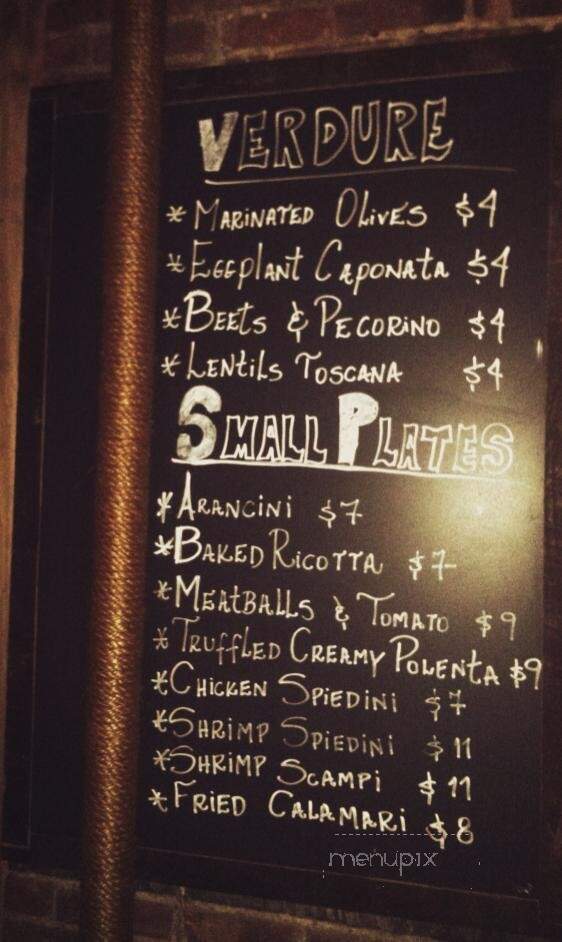 VERDURE
* MARINATED OLIVES $4
* EGGPLANT CAPONATA $4
* BEETS & PECORINO $4
* LENTILS TOSCANA $4
SMALL PLATES
* ARANCINI $7
* BAKED RICOTTA $7
* MEATBALLS & TOMATO $9
* TRUFFLED CREAMY POLENTA $9
* CHICKEN SPIEDINI $7
* SHRIMP SPIEDINI $11
* SHRIMP SCAMPI $11
* FRIED CALAMARI $8
menupix